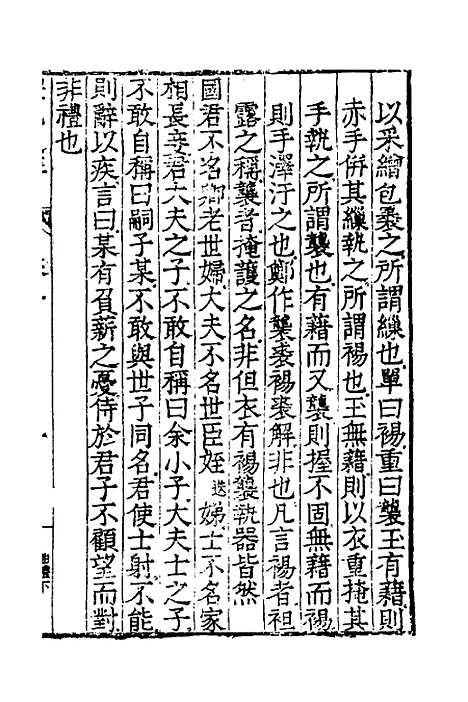 以采繒包裹之所謂繅也單曰裼重曰襲玉有藉則
赤手併其繅執之所謂裼也玉無藉則以衣重掩其
手執之所謂襲也有藉而又襲則握不固無藉而裼
則手澤汙之也鄭作襲裘裼裘解非也凡言裼者袒
露之稱襲者掩護之名非但衣有裼襲執器皆然
國君不名卿老世婦大夫不名世臣姪迭娣士不名家
相長妾君大夫之子不敢自稱曰余小子大夫士之子
不敢自稱曰嗣子某不敢與世子同名君使士射不能
則辭以疾言曰某有負薪之憂侍於君子不顧望而對
非禮也
曲禮下